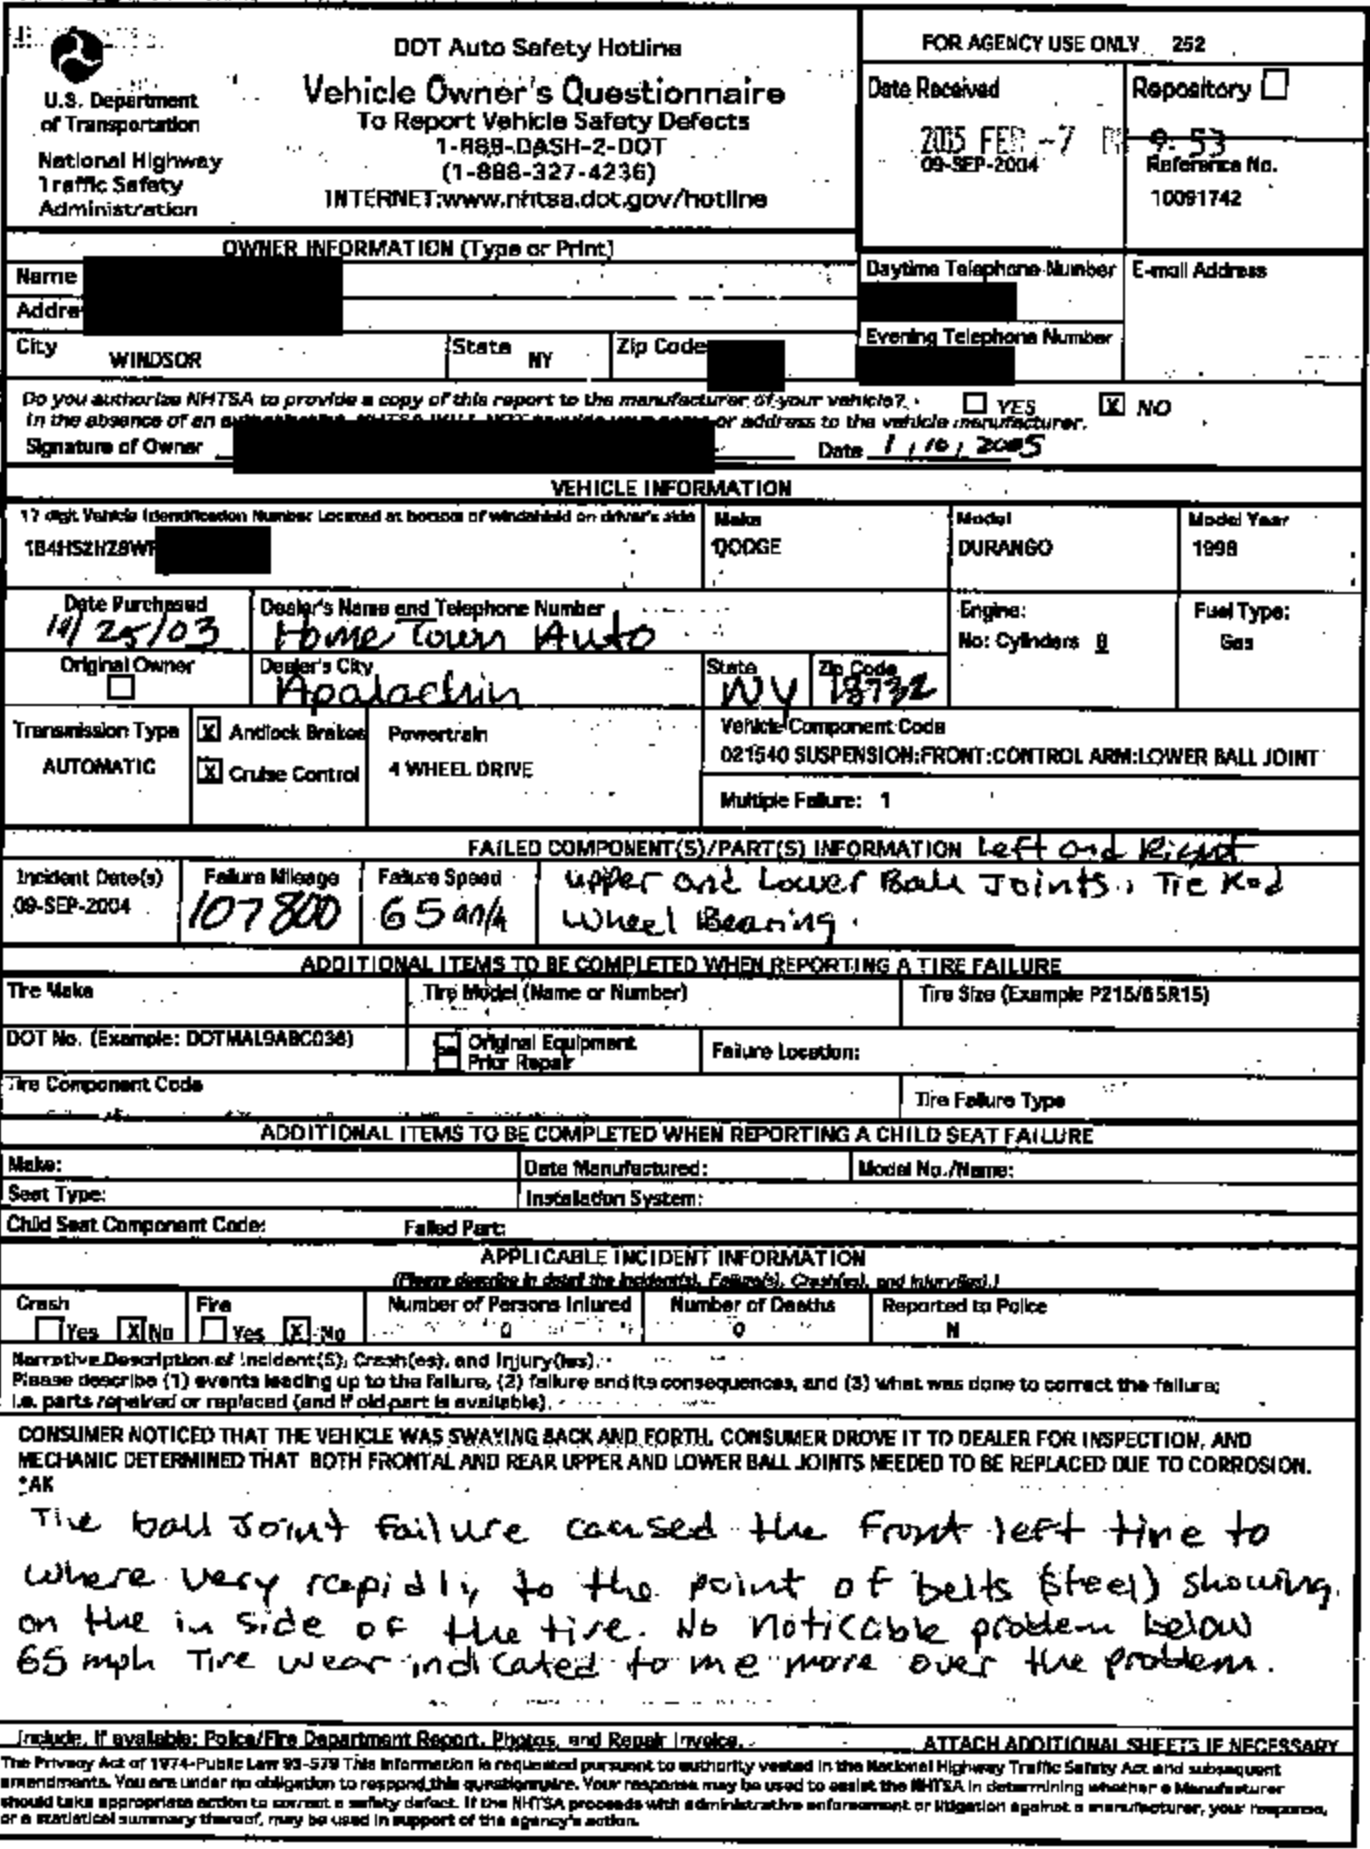 DOT Auto Safety Hotline
Vehicle Owner's Questionnaire
To Report Vehicle Safety Defects
1-888-DASH-2-DOT
(1-888-327-4236)
INTERNET:www.nhtsa.dot.gov/hotline
U.S. Department
of Transportation
National Highway
Traffic Safety
Administration
FOR AGENCY USE ONLY 252
Date Received
2005 FEB -7 9:53
09-SEP-2004
Repository
Reference No.
10091742
OWNER INFORMATION (Type or Print)
Name
Addre
City WINDSOR State NY Zip Code
Daytime Telephone Number
E-mail Address
Evening Telephone Number
Do you authorize NHTSA to provide a copy of this report to the manufacturer of your vehicle? YES X NO
In the absence of an or address to the vehicle manufacturer.
Signature of Owner Date 1/10/2005
VEHICLE INFORMATION
17 digit Vehicle Identification Number Located at bottom of windshield on driver's side
1B4HS2HZ8WF
Make
DODGE
Model
DURANGO
Model Year
1998
Date Purchased
10/25/03
Dealer's Name and Telephone Number
Home Town Auto
Engine:
No: Cylinders 8
Fuel Type:
Gas
Original Owner
Dealer's City
Apalachin
State
NY
Zip Code
13732
Transmission Type
AUTOMATIC
X Antilock Brakes
X Cruise Control
Powertrain
4 WHEEL DRIVE
Vehicle Component Code
021540 SUSPENSION:FRONT:CONTROL ARM:LOWER BALL JOINT
Multiple Failure: 1
FAILED COMPONENT(S)/PART(S) INFORMATION Left and Right
Incident Date(s)
09-SEP-2004
Failure Mileage
107800
Failure Speed
65
upper and Lower Ball Joints, Tie Rod
Wheel Bearing.
ADDITIONAL ITEMS TO BE COMPLETED WHEN REPORTING A TIRE FAILURE
Tire Make
Tire Model (Name or Number)
Tire Size (Example P215/65R15)
DOT No. (Example: DOTMAL9ABC036)
Original Equipment
Prior Repair
Failure Location:
Tire Component Code
Tire Failure Type
ADDITIONAL ITEMS TO BE COMPLETED WHEN REPORTING A CHILD SEAT FAILURE
Make:
Date Manufactured:
Model No./Name:
Seat Type:
Installation System:
Child Seat Component Code:
Failed Part:
APPLICABLE INCIDENT INFORMATION
(Please describe in detail the Incident(s), Failure(s), Crash(es), and Injury(ies).)
Crash
Yes X No
Fire
Yes X No
Number of Persons Injured
0
Number of Deaths
0
Reported to Police
N
Narrative Description of Incident(S), Crash(es), and Injury(ies).
Please describe (1) events leading up to the failure, (2) failure and its consequences, and (3) what was done to correct the failure;
i.e. parts repaired or replaced (and if old part is available).
CONSUMER NOTICED THAT THE VEHICLE WAS SWAYING BACK AND FORTH. CONSUMER DROVE IT TO DEALER FOR INSPECTION, AND
MECHANIC DETERMINED THAT BOTH FRONTAL AND REAR UPPER AND LOWER BALL JOINTS NEEDED TO BE REPLACED DUE TO CORROSION.
*AK
The ball Joint failure caused the Front left tire to
where very rapidly to the point of belts (steel) showing
on the in side of the tire. No noticable problem below
65 mph Tire wear indicated to me more over the problem.
Include, if available: Police/Fire Department Report, Photos, and Repair Invoice.
ATTACH ADDITIONAL SHEETS IF NECESSARY
The Privacy Act of 1974-Public Law 93-579 This information is requested pursuant to authority vested in the National Highway Traffic Safety Act and subsequent
amendments. You are under no obligation to respond this questionnaire. Your response may be used to assist the NHTSA in determining whether a Manufacturer
should take appropriate action to correct a safety defect. If the NHTSA proceeds with administrative enforcement or litigation against a manufacturer, your response,
or a statistical summary thereof, may be used in support of the agency's action.